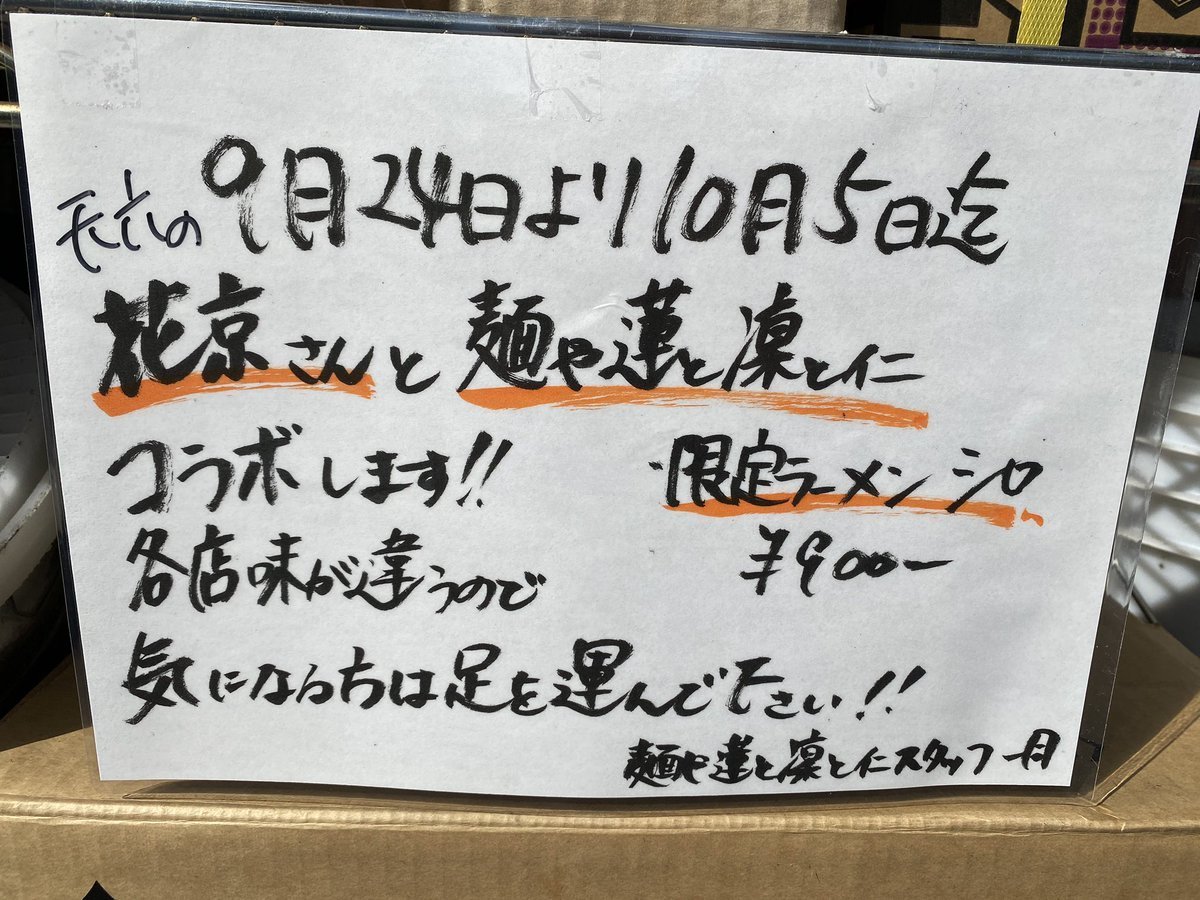 9月24日より10月5日迄
天六の
花京さんと麺や蓮と凛と仁
コラボします!!
限定ラーメン シロ
¥900ー
各店味が違うので
気になる方は足を運んで下さい!!
麺や蓮と凛と仁スタッフ一同